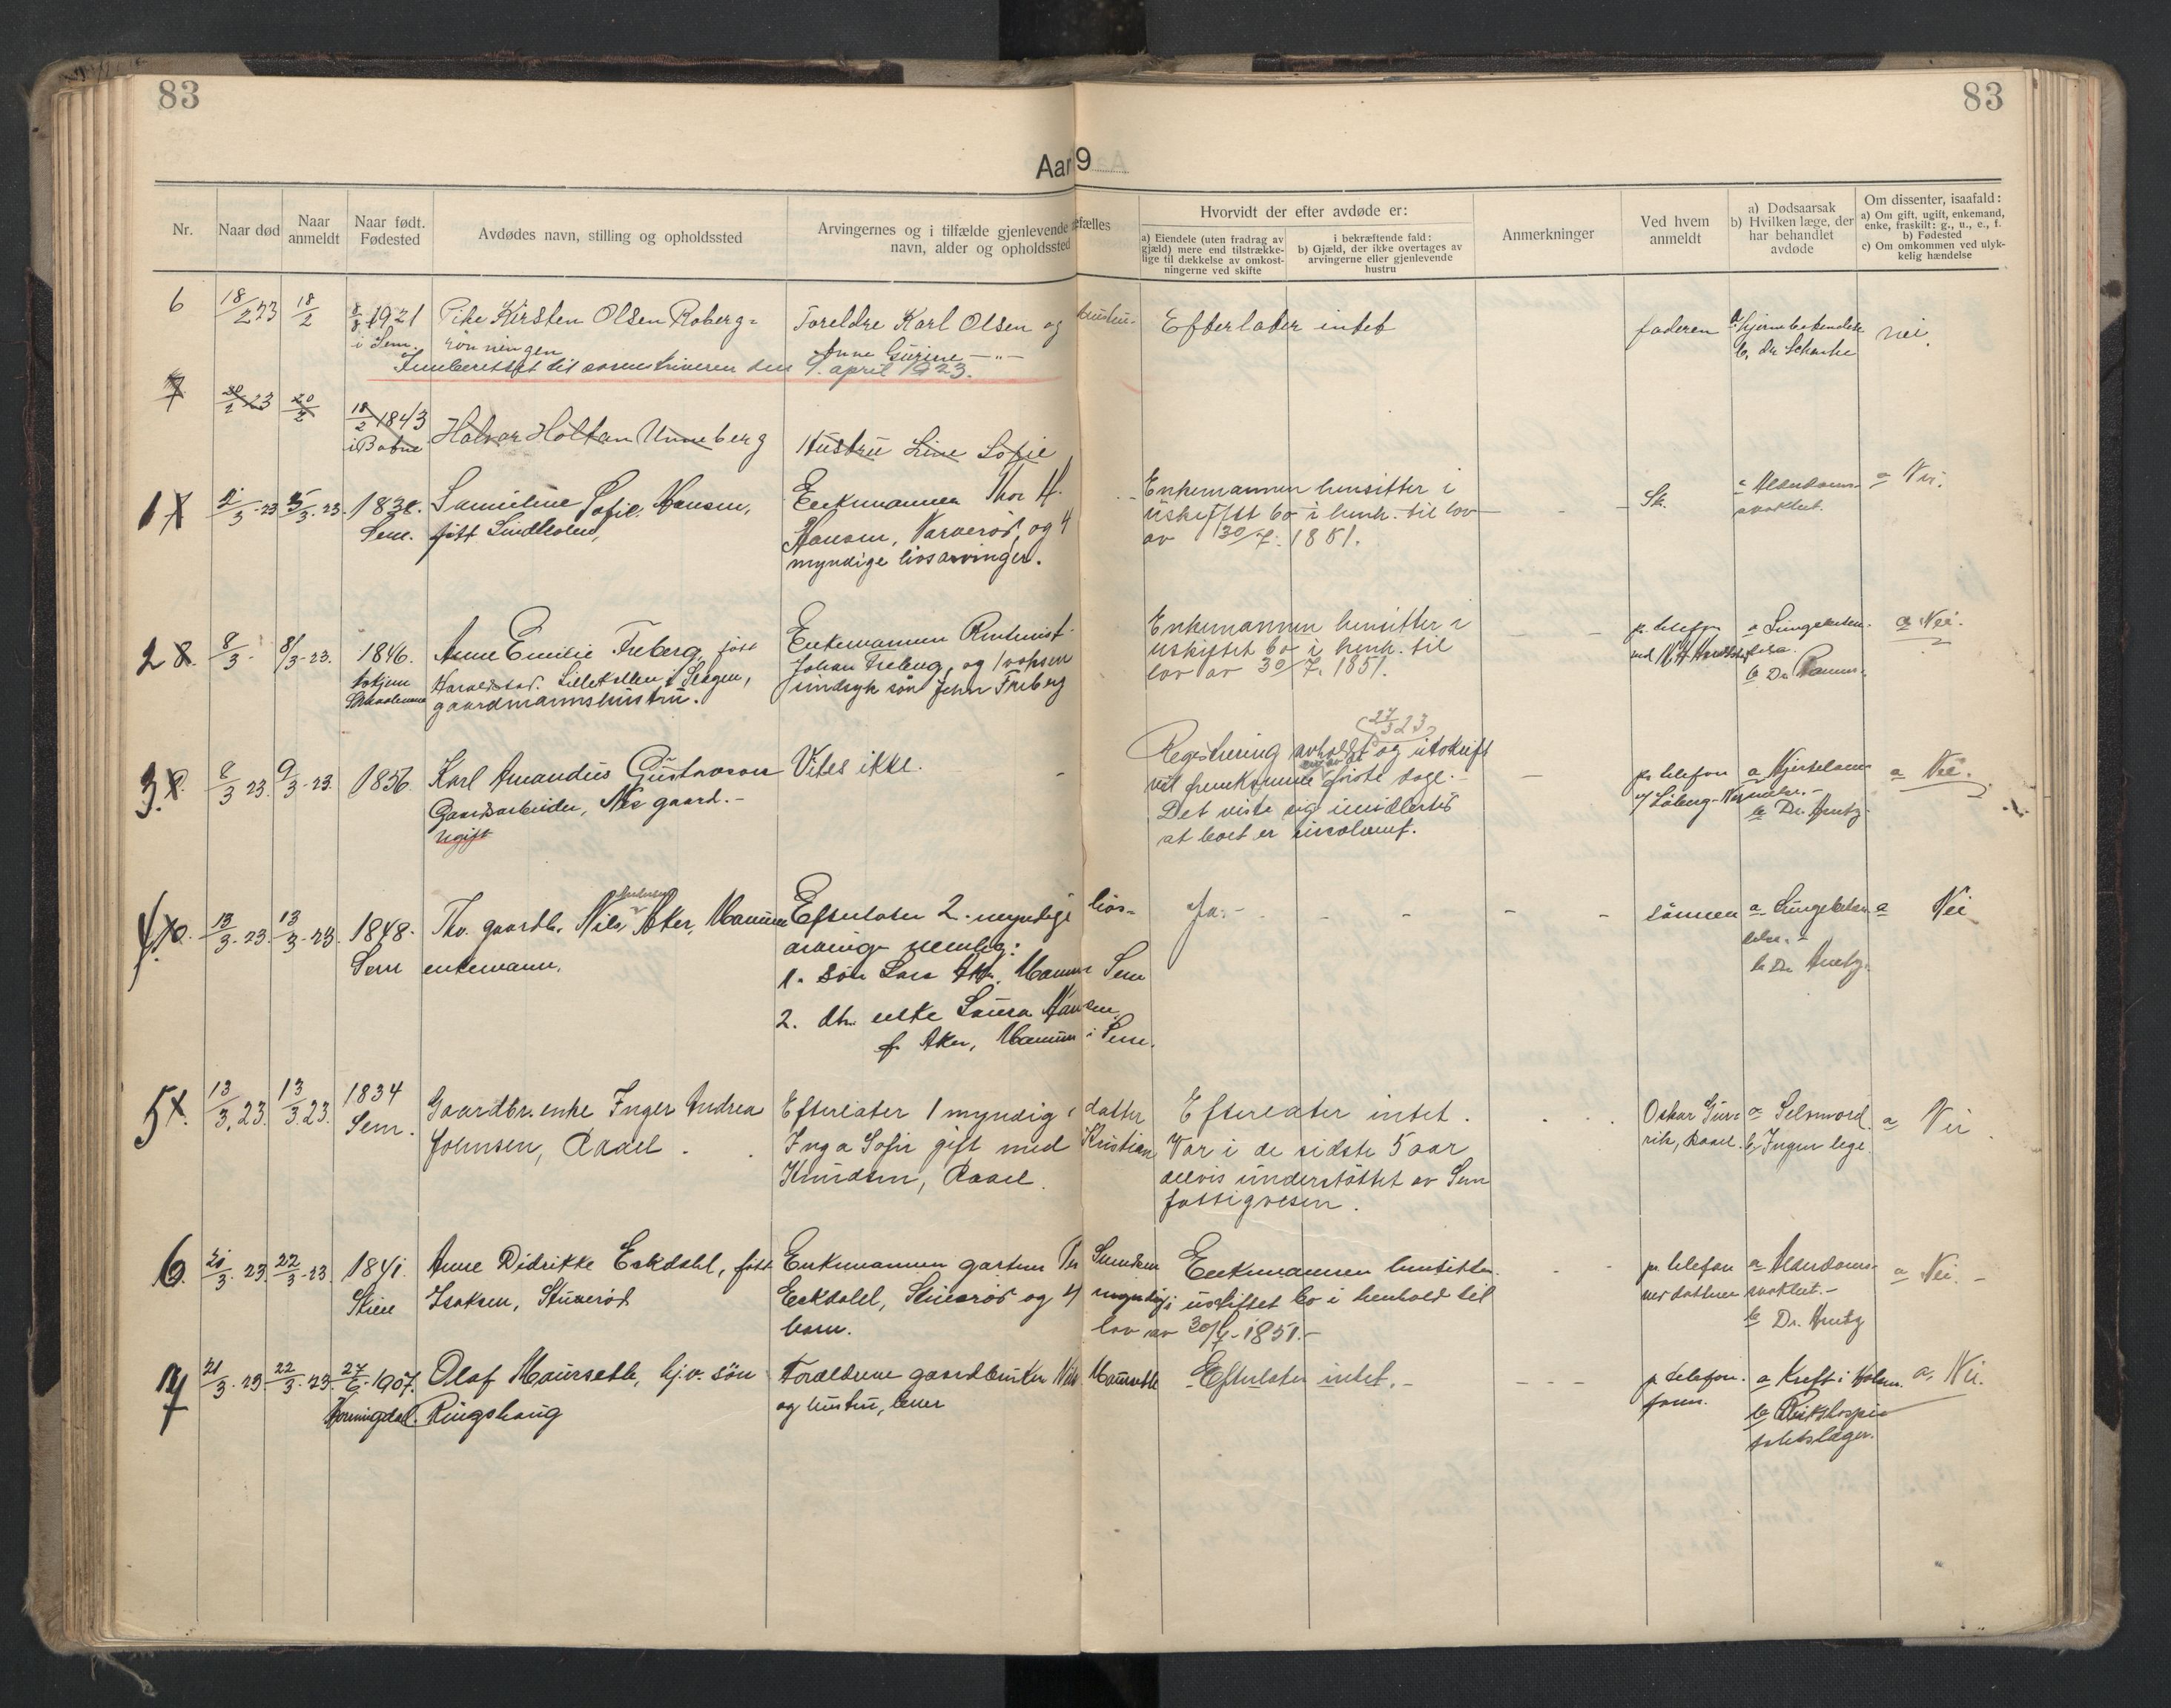 83
83
Aar 19
Nr.
Naar død
Naar anmeldt
Naar født. Fødested
Avdødes navn, stilling og opholdssted
Arvingernes og i tilfælde gjenlevende
navn, alder og opholdssted
efælles
Hvorvidt der efter avdøde er:
a) Eiendele (uten fradrag av gjæld) mere end tilstrække-lige til dækkelse av omkost-ningerne ved skifte
i bekræftende fald: b) Gjæld, der ikke overtages av arvingerne eller gjenlevende hustru
Anmerkninger
Ved hvem anmeldt
a) Dødsaarsak b) Hvilken læge, der har behandlet avdøde
Om dissenter, isaafald: a) Om gift, ugift, enkemand, enke, fraskilt: g., u., e., f. b) Fødested c) Om omkommen ved ulyk-kelig hændelse
6 18/2 23 18/2 8/8 1921 Pike Kirsten Olsen Roberg= Foreldre Karl Olsen og hustru Efterlater intet faderen a. hjernebetendelse nei.
i Sem. rønningen Anne Gurine —"— b. dr Scharke
Innberettet til sorenskriveren den 9. april 1923.
7 20/2 23 20/2 18/2 1843 Halvor Holtan Unneberg Hustru Line Sofie
i Botne
1 2/3-23 5/3-23. 1838. Samuline Sofie Hansen, Enkemannen Thor H. Enkemannen hensitter i Sk. a Alderdoms- a Nei.
Sem. født Lindholm, Hansen, Varverød, og 4 uskiftet bo i henh. til lov svakhet.
myndige livsarvinger. av 30/7. 1851.
2 8. 8/3. 8/3-23. 1846. Anne Emilie Freberg, født Enkemannen Johan Freberg, og 1 voksen Enkemannen hensitter i pr. telefon a Lungebeten- a Nei.
Haraldstad. Lillekollen i Slagen, sindsyk søn John Freberg uskiftet bo i henh. til delse.
gaardmannshustru. lov av 30/7. 1851. b Dr.
(27/3 23)
3. 8/3 23. 9/3-23. 1856. Karl Amandus Gustavson Vites ikke. Registrering avholdt og utskrift pr telefon a Hjertelam- a Nei.
Gaardsarbeider, Nes gaard.- vil fremkomme første dage.- melse.-
Ugift Det viste sig imidlertid b Dr. Arntz
at boet er insolvent.
4. 13/3.23. 13/3-23. 1848. Fhv. gaardb. Nils Aker, Efterlater 2 myndige livs- Ja.- sønnen a Lungebeten- a Nei
Sem enkemann. arvinger nemlig: delse.-
1. søn Lars Sem b Dr. Arntz.
2. dtr. enke Laura Hansen,
f. Aker, i Sem.
5 13/3.23. 13/3.23. 1834 Gaardbr. enke Inger Andrea Efterlater 1 myndig datter Efterlater intet. Oskar a. Selvmord. a Nei
Sem. Johnsen, Raael. Inga Sofie gift med Kristian Var i de sidste 5 aar Raael. b. Ingen lege.
Knudsen, Raael. delvis understøttet av Sem
fattigvesen.
6. 21/3.23. 22/3-23 1841. Anne Didrikke Eekdahl, født Enkemannen gartner Per Enkemannen hensitter pr telefon a Alderdoms- a Nei.-
Skien Isaksen, Stuverød Eekdahl, Stuverød og 4 myndige i uskiftet bo i henhold til ved datteren svakhet.-
barn. lov av 30/7-1851.- b Dr. Arntz
7 21/3.23. 22/3-23. 27/6-1907. Olaf Maurseth, hj.v. søn Foreldrene gaardbruker Nils Maurseth Efterlater intet.- p telefon. a Kreft i a. Nei.
Ringshaug og hustru, b Rikshospi-
talets læger.